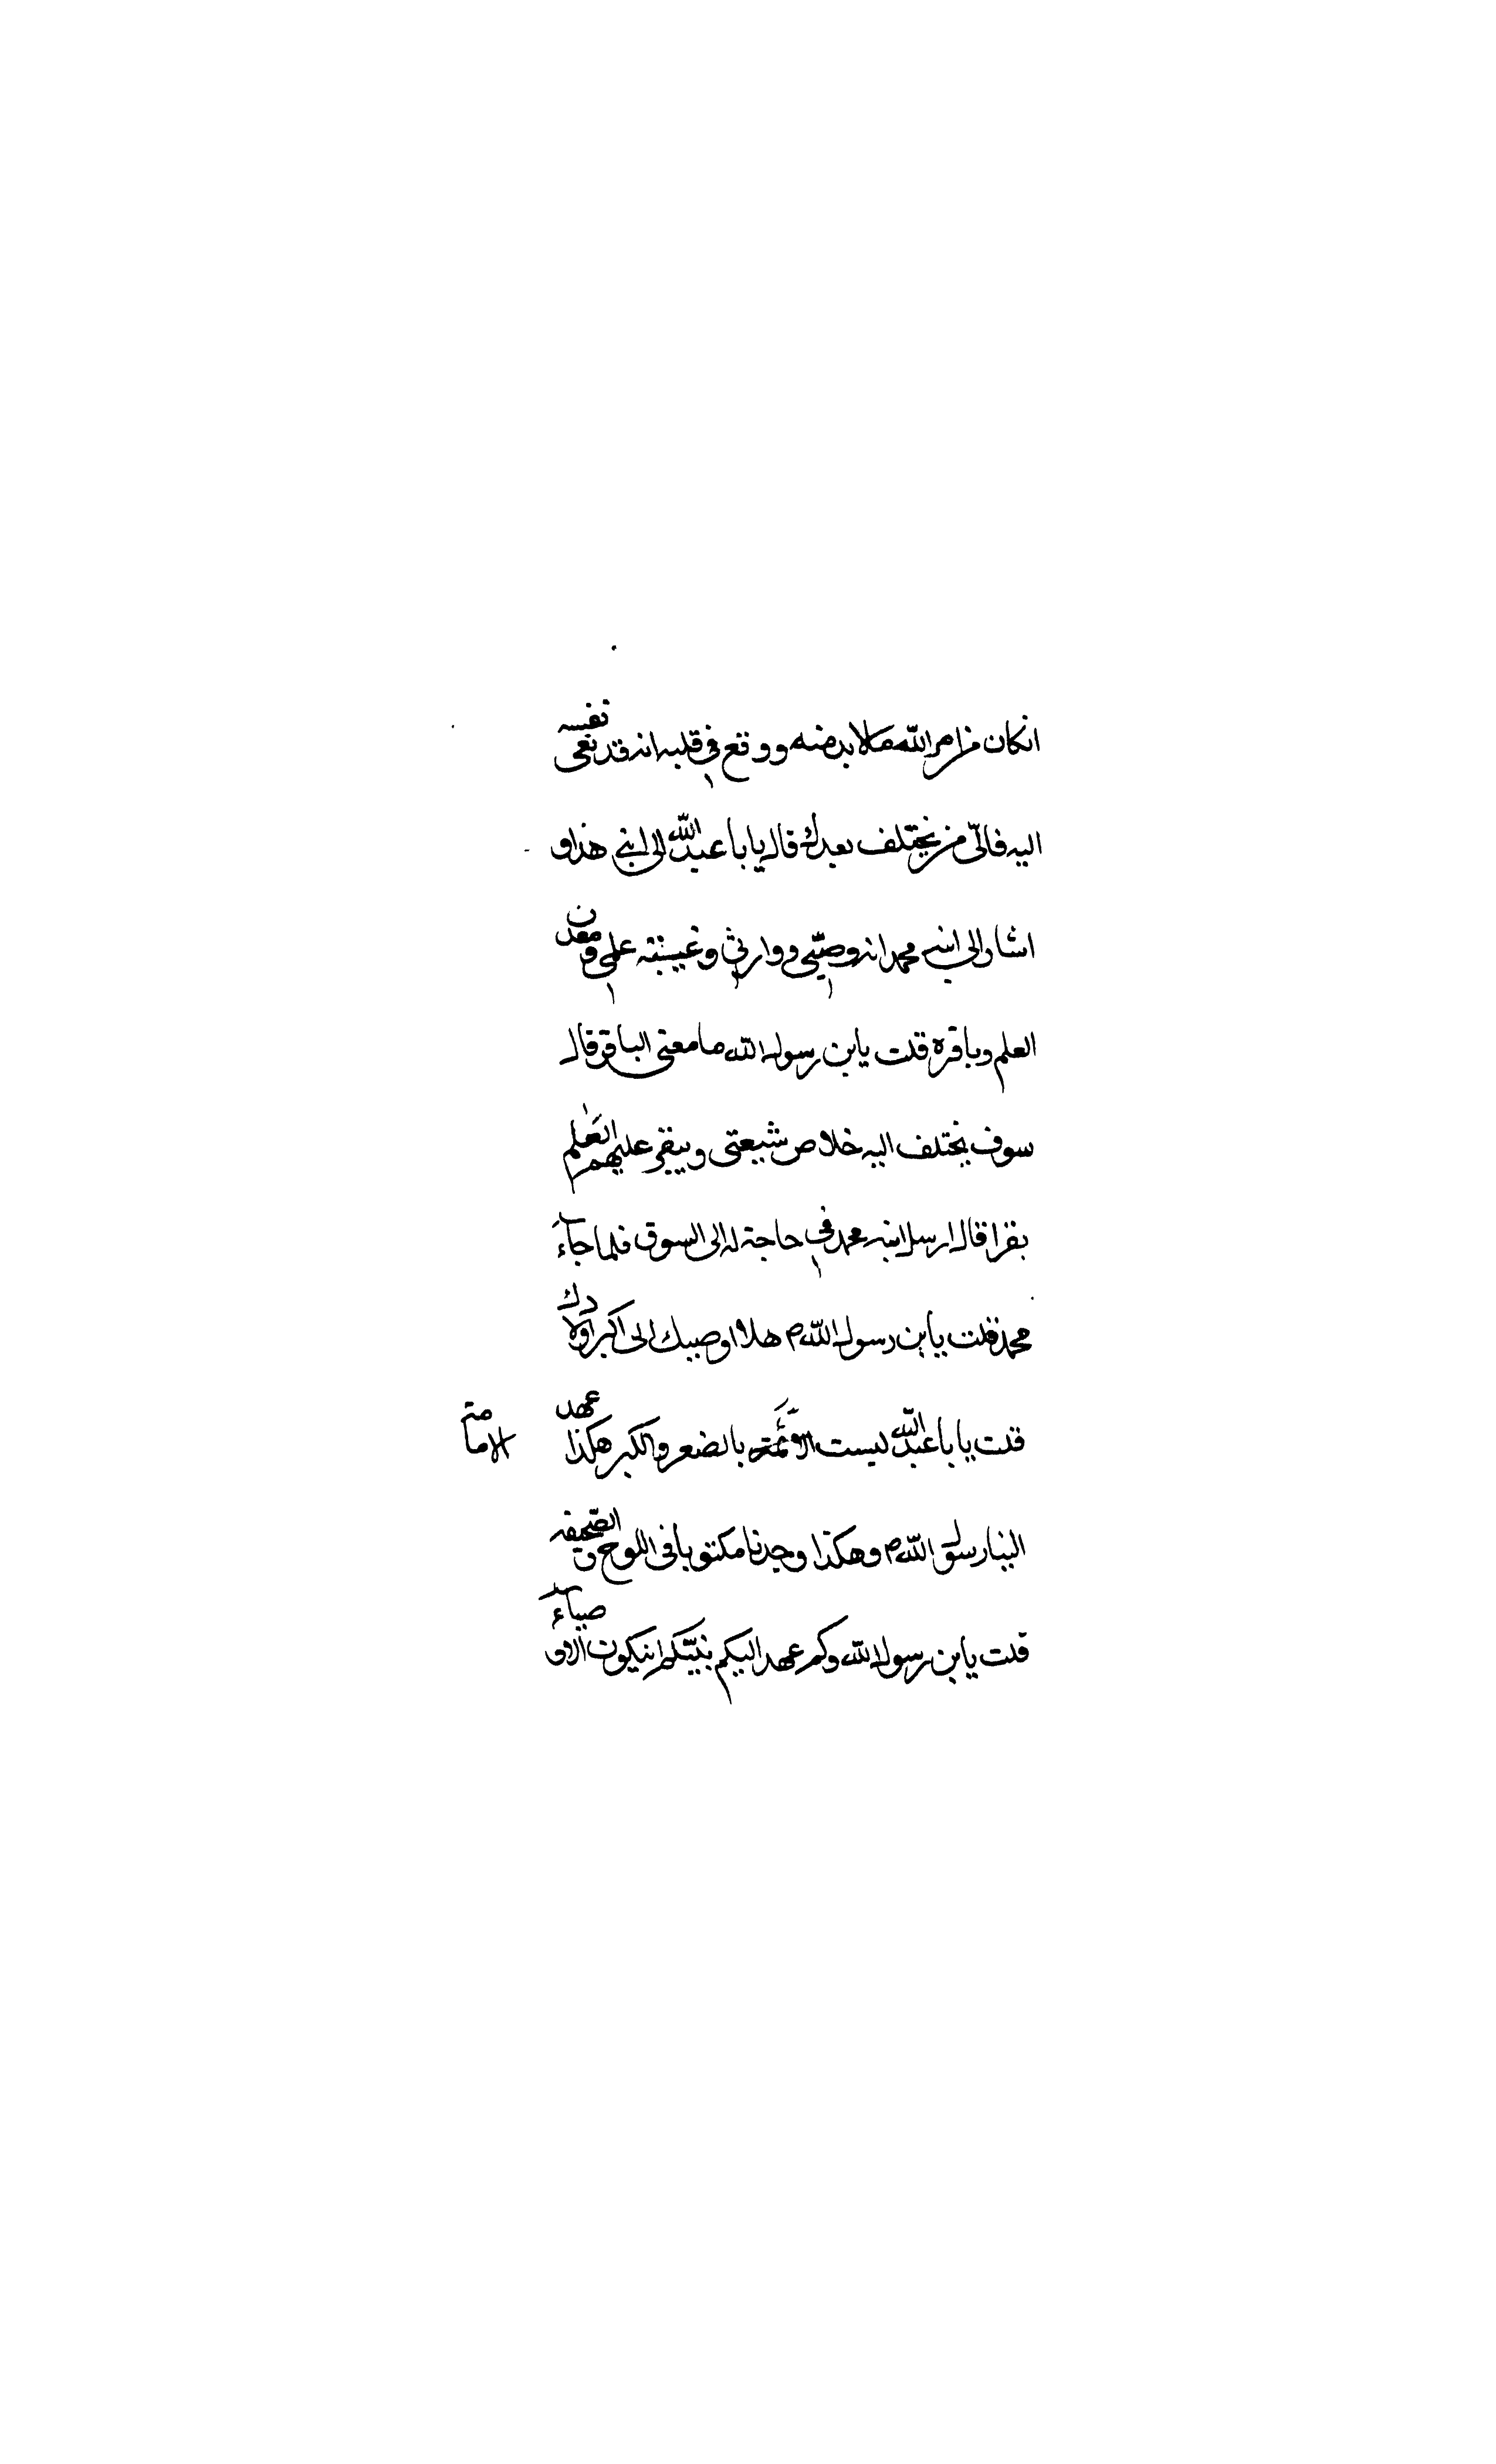 انكان من امر الله مما لابد منه ووقع في قلبه انه قد نعى نفسه
اليه فالى من نختلف بعدك قال يابا عبد الله الى ابني هذا و
اشار الى ابنه محمد انه وصيّي ووارثي وعيبته علمي ومعدن
العلم وباقره قلت يابن رسول الله ما معنى الباقر قال
سوف يختلف اليه خلاص شيعتي ويبقر عليهم العلم
بقرا قال ارسل ابنه محمد في حاجة له الى السوق فلما جاء
محمد قلت يابن رسول الله ص هلا اوصيك الى اكبر اولادك
قلت يابا عبد الله ليست الائمّة بالصغر والكبر هكذا عهد
الامامة
الينا رسول الله ص وهكذا وجدنا مكتوبا في اللوح والصّحيفه
قلت يابن رسول الله وكم عهد اليكم نبيّكم ان يكون الاوصياء